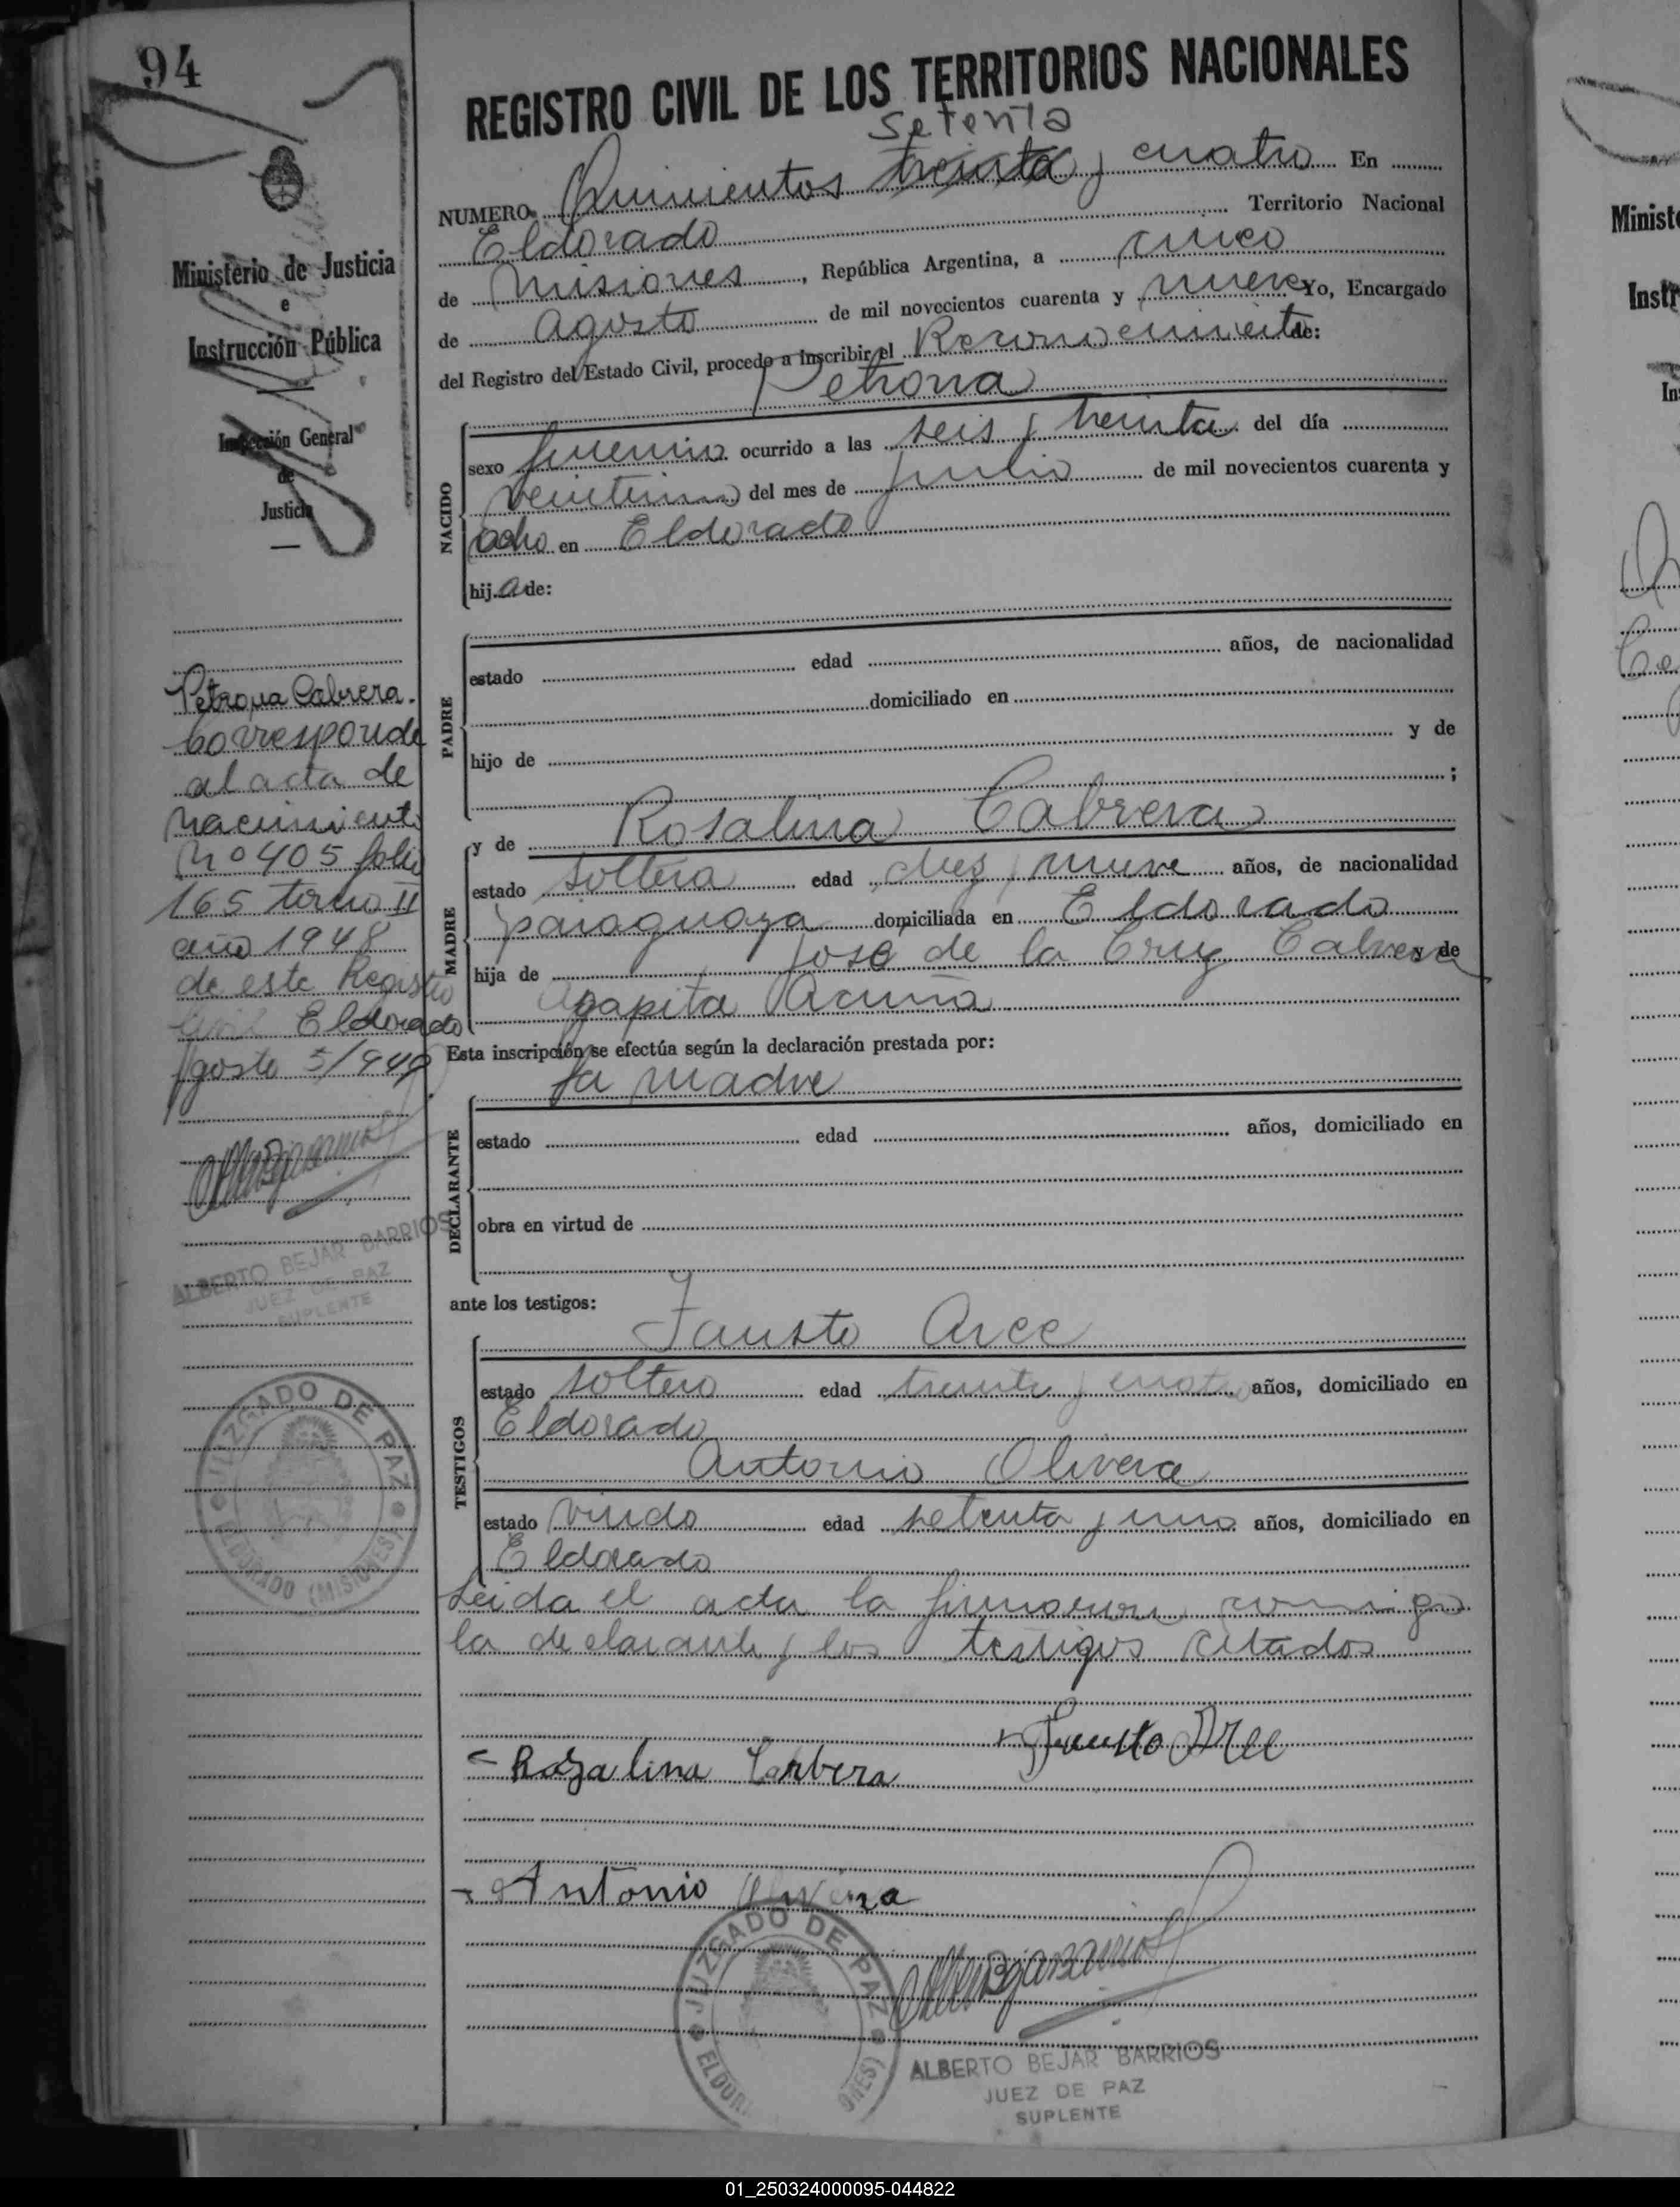 94
REGISTRO CIVIL DE LOS TERRITORIOS NACIONALES
setenta
NUMERO Quinientos treinta y cuatro En
Eldorado Territorio Nacional
de Misiones, República Argentina, a cinco
de agosto de mil novecientos cuarenta y nueve Yo, Encargado
del Registro del Estado Civil, procedo a inscribir el Reconocimiento de:
Petrona
NACIDO
sexo femenino ocurrido a las seis y treinta del día
veintiuno del mes de julio de mil novecientos cuarenta y
ocho en Eldorado
hija de:
PADRE
estado edad años, de nacionalidad
domiciliado en
hijo de y de
;
MADRE
y de Rosalina Cabrera
estado soltera edad diez y nueve años, de nacionalidad
paraguaya domiciliada en Eldorado
hija de José de la Cruz Cabrera y de
Agapita Acuña
Esta inscripción se efectúa según la declaración prestada por:
la madre
DECLARANTE
estado edad años, domiciliado en
obra en virtud de
ante los testigos:
TESTIGOS
Fausto Arce
estado soltero edad treinta y cuatro años, domiciliado en
Eldorado
Antonio Olivera
estado viudo edad setenta y uno años, domiciliado en
Eldorado
Leida el acta la firmaron conmigo
la declarante y los testigos citados
Fausto Arce
Rozalina Carbera
Antonio Olivera
JUZGADO DE PAZ
ALBERTO BEJAR BARRIOS
JUEZ DE PAZ
SUPLENTE
Ministerio de Justicia
e
Instrucción Pública
Inspección General
de
Justicia
Petrona Cabrera.
Corresponde
al acta de
nacimiento
Nº 405 folio
165 tomo II
año 1948
de este Registro
Civil Eldorado
Agosto 5/949
ALBERTO BEJAR BARRIOS
JUEZ DE PAZ
SUPLENTE
JUZGADO DE PAZ
ELDORADO (MISIONES)
Minist
Instr
In
01_250324000095-044822